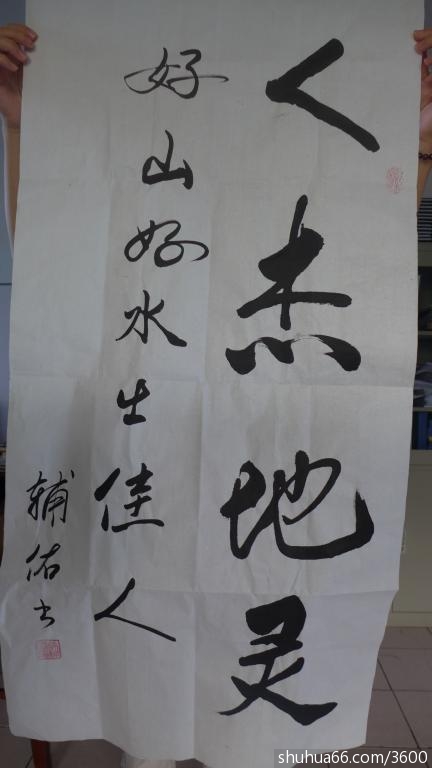 人杰地灵
好山好水生佳人
辅佑书
shuhua66.com/3600